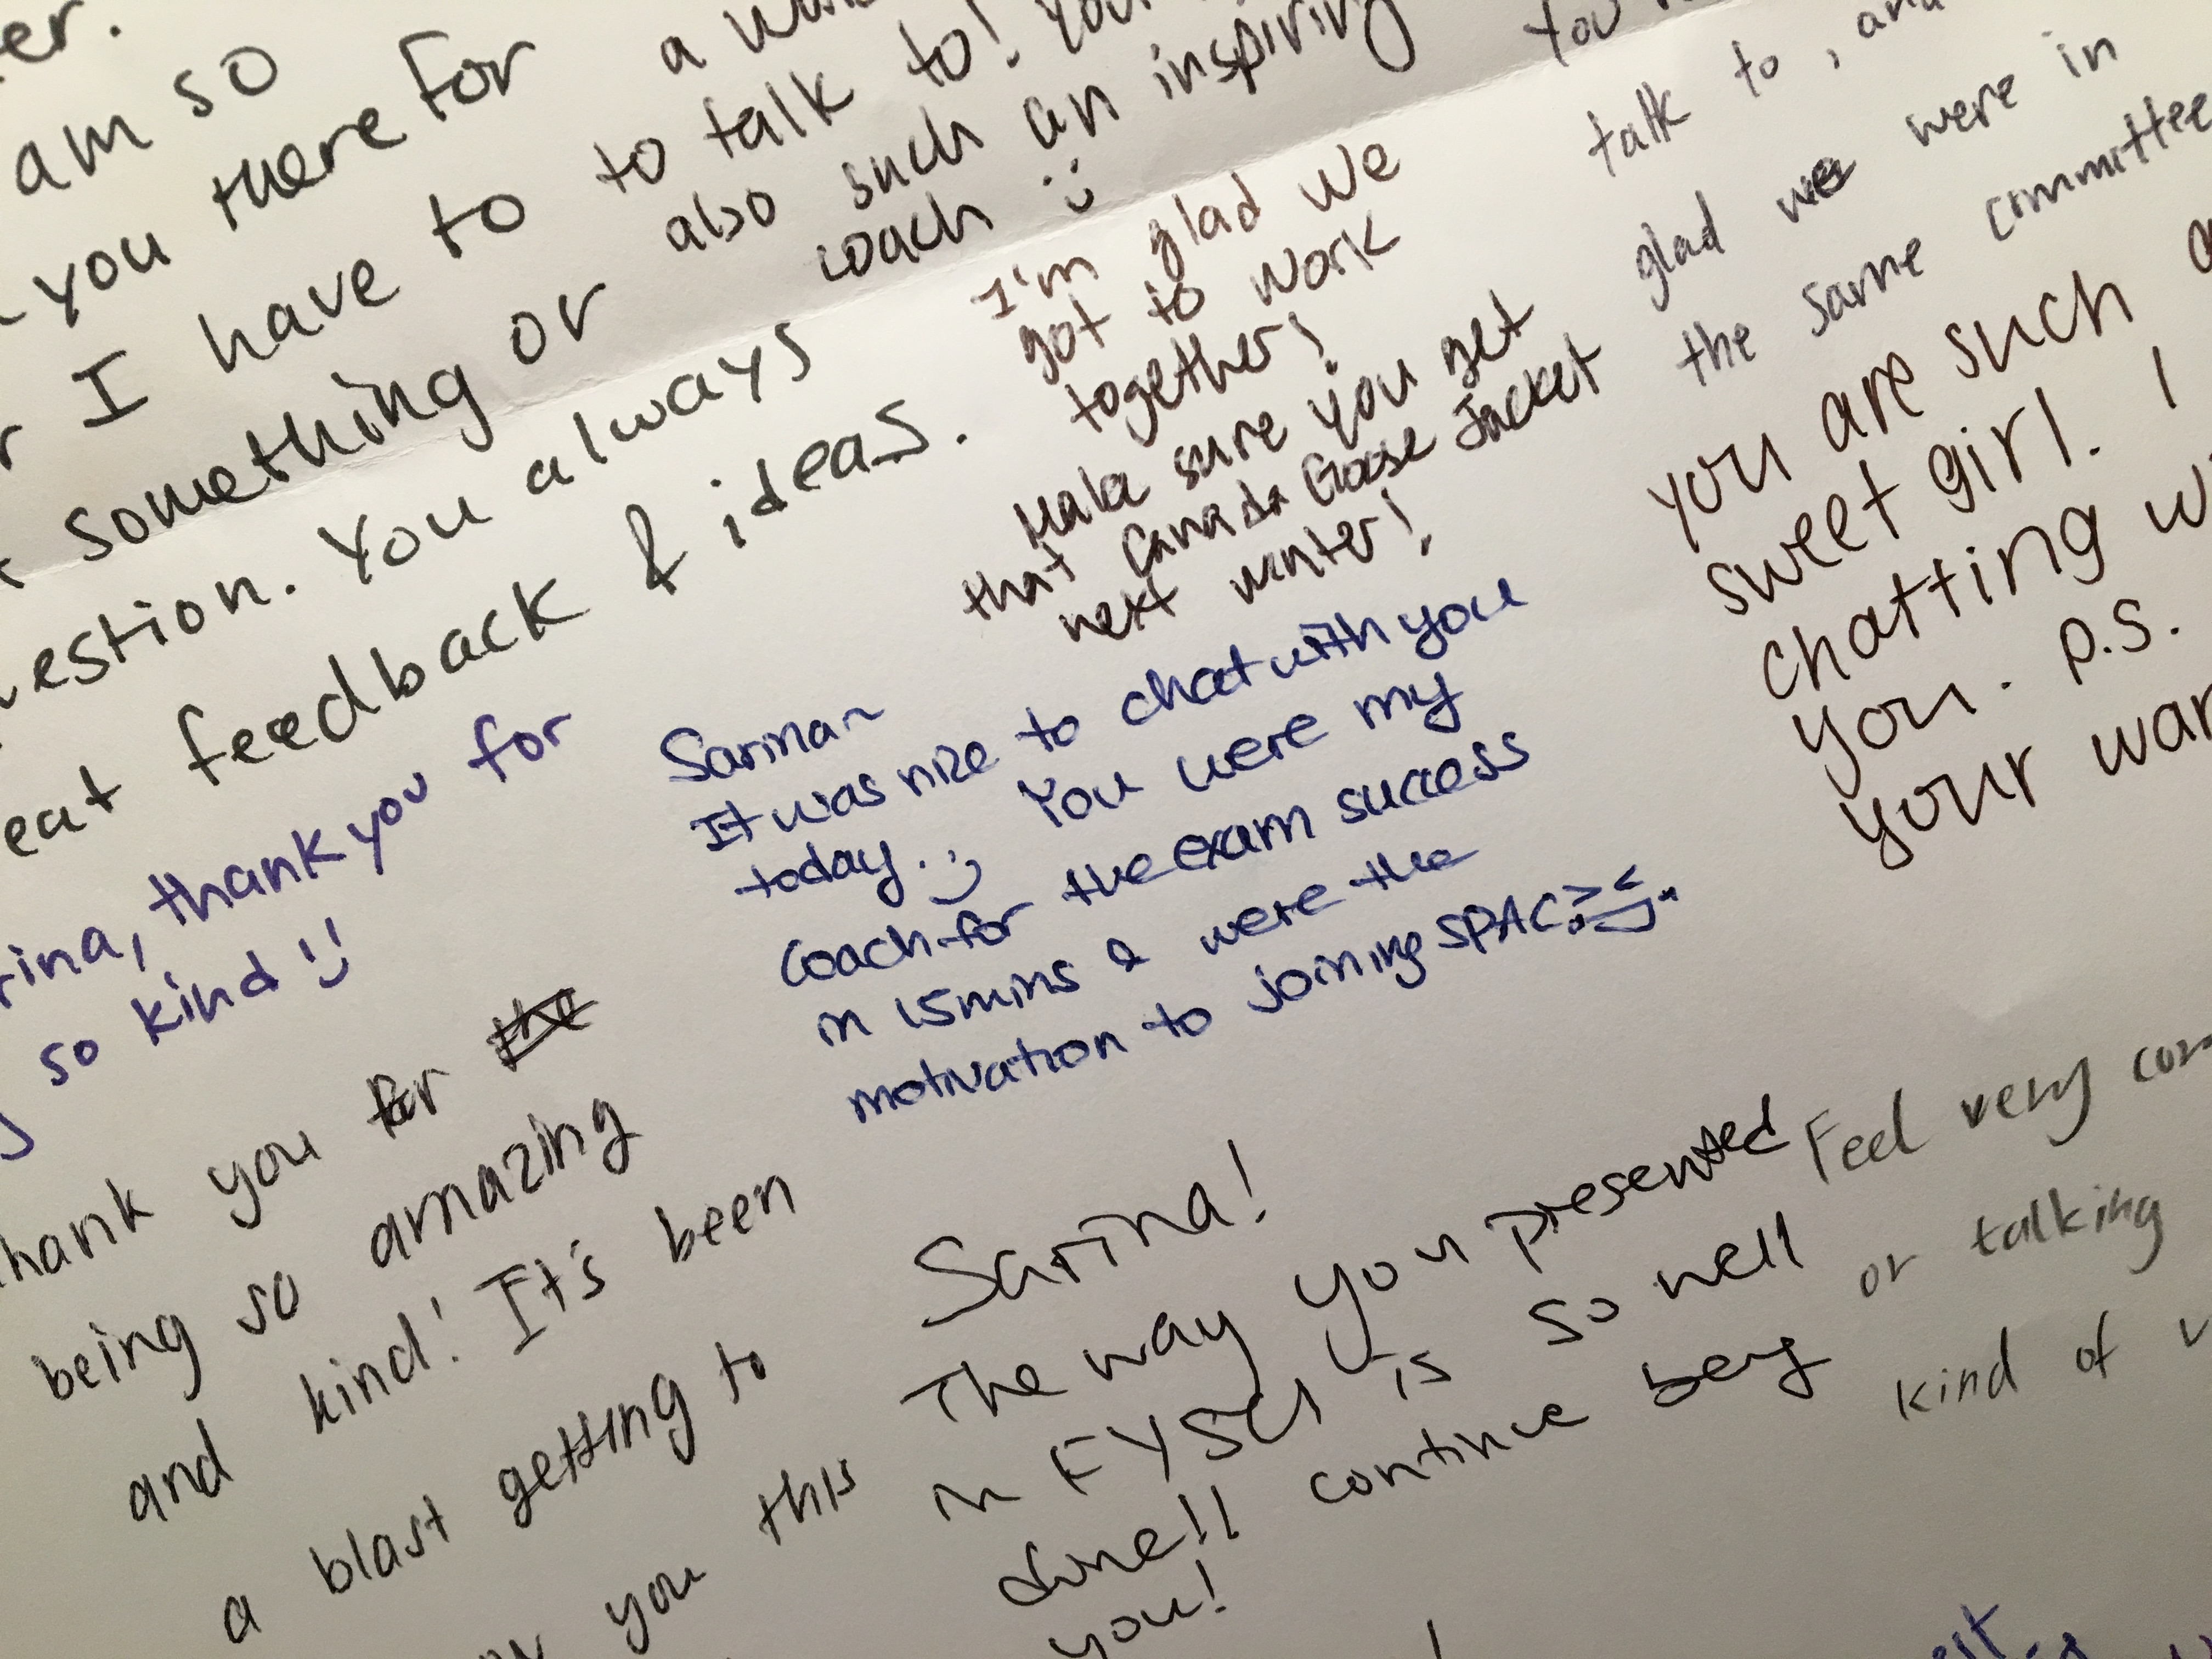 er.
am so
you there for
I have to
something or
estion. You always
eat feedback & ideas.
to talk to! You
also such an inspiring
coach :)
I'm glad we
got to work
together!
Make sure you get
that Canada Goose Jacket
next winter!
talk to, and
glad we were in
the same committee
you are such a
sweet girl. I
chatting w
you. P.S.
your war
ina, thank you for
so kind :)
Sarina~
It was nice to chat with you
today. :) You were my
coach for the exam success
in 15 mins & were the
motivation to joining SPAC
hank you for the
being so amazing
and kind! It's been
a blast getting to
you this
Sarina!
The way you presented
in FYSCI is so well
done!! continue being
you!
Feel very com
or talking
kind of